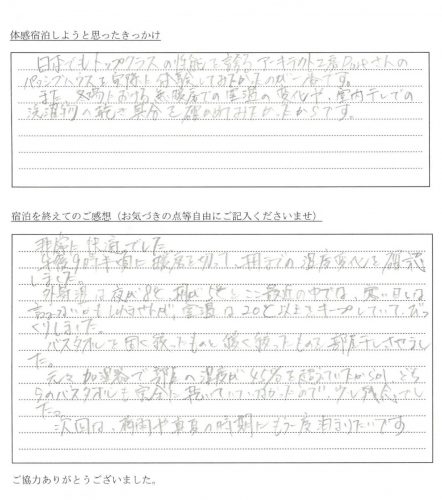 体感宿泊しようと思ったきっかけ
日本でもトップクラスの性能を誇るアーキテクト工房Pureさんの
パッシブハウスを実際に体験してみたかったのが一番です。
また、冬場における無暖房での室温の変化や、室内干しでの
洗濯物の乾き具合を確かめてみたかったからです。
宿泊を終えてのご感想（お気づきの点等自由にご記入くださいませ）
非常に快適でした
午後9時半頃に暖房を切って、朝までの温度変化を確認
しました。
外気温は夜が8℃、朝が5℃とここ最近の中では、寒い日とは
言えないかもしれませんが、室温は20℃以上をキープしていて、びっ
くりしました。
バスタオルを固く絞ったものと軽く絞ったものを部屋干しさせまし
た。
元々加湿器で部屋の湿度が45%を超えていたからか、どち
らのバスタオルも完全に乾いていなかったので少し残念でし
た。
次回は、梅雨や真夏の時期にもう一度泊まりたいです
ご協力ありがとうございました。